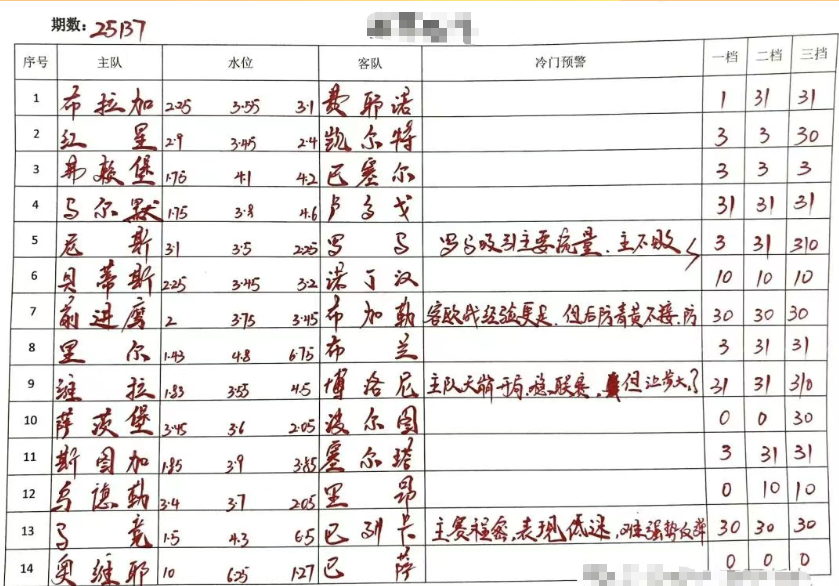 期数: 25137
序号 主队 水位 客队 冷门预警 一档 二档 三挡
1 布拉加 2.25 3.55 3.1 费耶诺 1 31 31
2 红星 2.9 3.45 2.4 凯尔特 3 3 30
3 弗赖堡 1.75 4.1 4.2 巴塞尔 3 3 3
4 马尔默 1.75 3.8 4.6 卢多戈 31 31 31
5 尼斯 3.1 3.5 2.25 罗马 罗马吸引主要流量、主不败 3 31 310
6 贝蒂斯 2.25 3.45 3.2 诺丁汉 10 10 10
7 前进鹰 2 3.75 3.45 布加勒 客欧战经验更足,但后防青黄不接,防 30 30 30
8 里尔 1.43 4.8 6.75 布兰 3 31 31
9 维拉 1.83 3.55 4.5 博洛尼 主队天崩开局,联赛,但让步大了 31 31 310
10 萨茨堡 3.45 3.6 2.05 波尔图 0 0 30
11 斯图加 1.85 3.9 3.85 塞尔塔 3 31 31
12 乌德勒 3.4 3.7 2.05 里昂 0 10 10
13 马竞 1.5 4.3 6.5 巴列卡 主赛程密,表现低迷,难强势反弹 30 30 30
14 奥维耶 10 6.25 1.27 巴萨 0 0 0